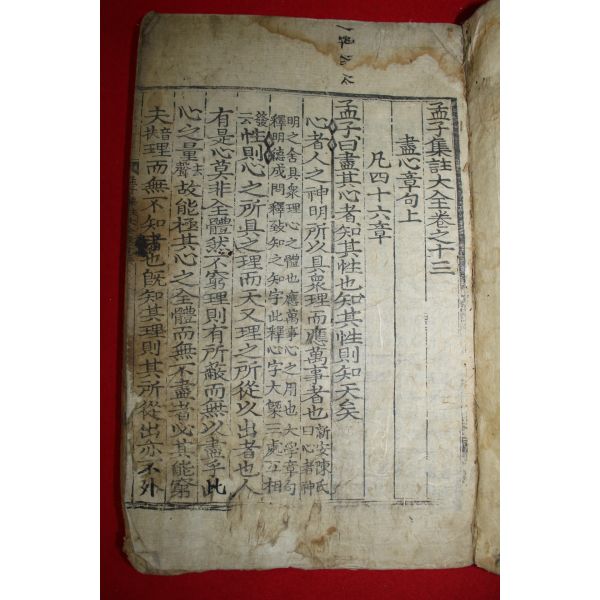 孟子集註大全卷之十三
盡心章句上
凡四十六章
孟子曰盡其心者知其性也知其性則知天矣
心者人之神明所以具衆理而應萬事者也
新安陳氏
曰心者神
明之舍具衆理心之體也應萬事心之用也大學章句
釋明德成問釋致知之知字此釋心字大槩三處互相
發云
性則心之所具之理而天又理之所從以出者也人
有是心莫非全體然不窮理則有所蔽而無以盡乎此
心之量去聲故能極其心之全體而無不盡者必其能窮
夫音扶理而無不知者也旣知其理則其所從出亦不外